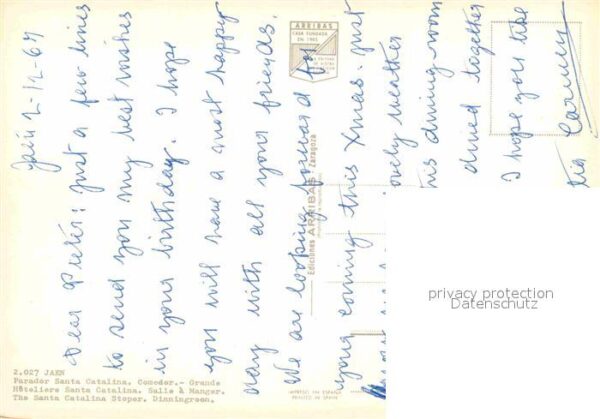 Jaén 2-12-69
Dear Peter: Just a few lines
to send you my best wishes
in your birthday. I hope
you will have a most happy
day with all your friends.
We are looking forward for
your coming this Xmas. Just
lovely weather
his dining room
dined together
I hope you like
tia Carmen
ARRIBAS
CASA FUNDADA
EN 1905
Ediciones ARRIBAS Zaragoza
2.027 JAEN
Parador Santa Catalina. Comedor.- Grande
Hôteliere Santa Catalina. Salle à Manger.
The Santa Catalina Stoper. Dinningroon.
IMPRESO EN ESPAÑA
PRINTED IN SPAIN
privacy protection
Datenschutz